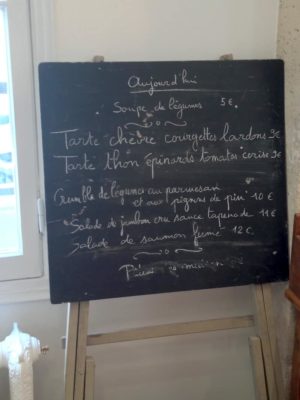 Aujourd'hui
Soupe de légumes 5€
Tarte chèvre courgettes lardons 9€
Tarte thon épinards tomates cerise 9€
Crumble de légumes au parmesan
et aux pignons de pin 10€
Salade de jambon cru sauce 11€
Salade de saumon fumé 12€